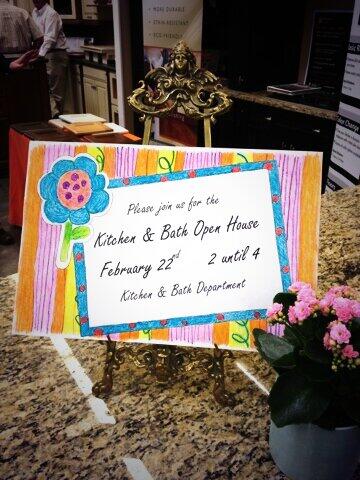 MORE DURABLE
STAIN-RESISTANT
ECO-FRIENDLY
Please join us for the
Kitchen & Bath Open House
February 22nd 2 until 4
Kitchen & Bath Department